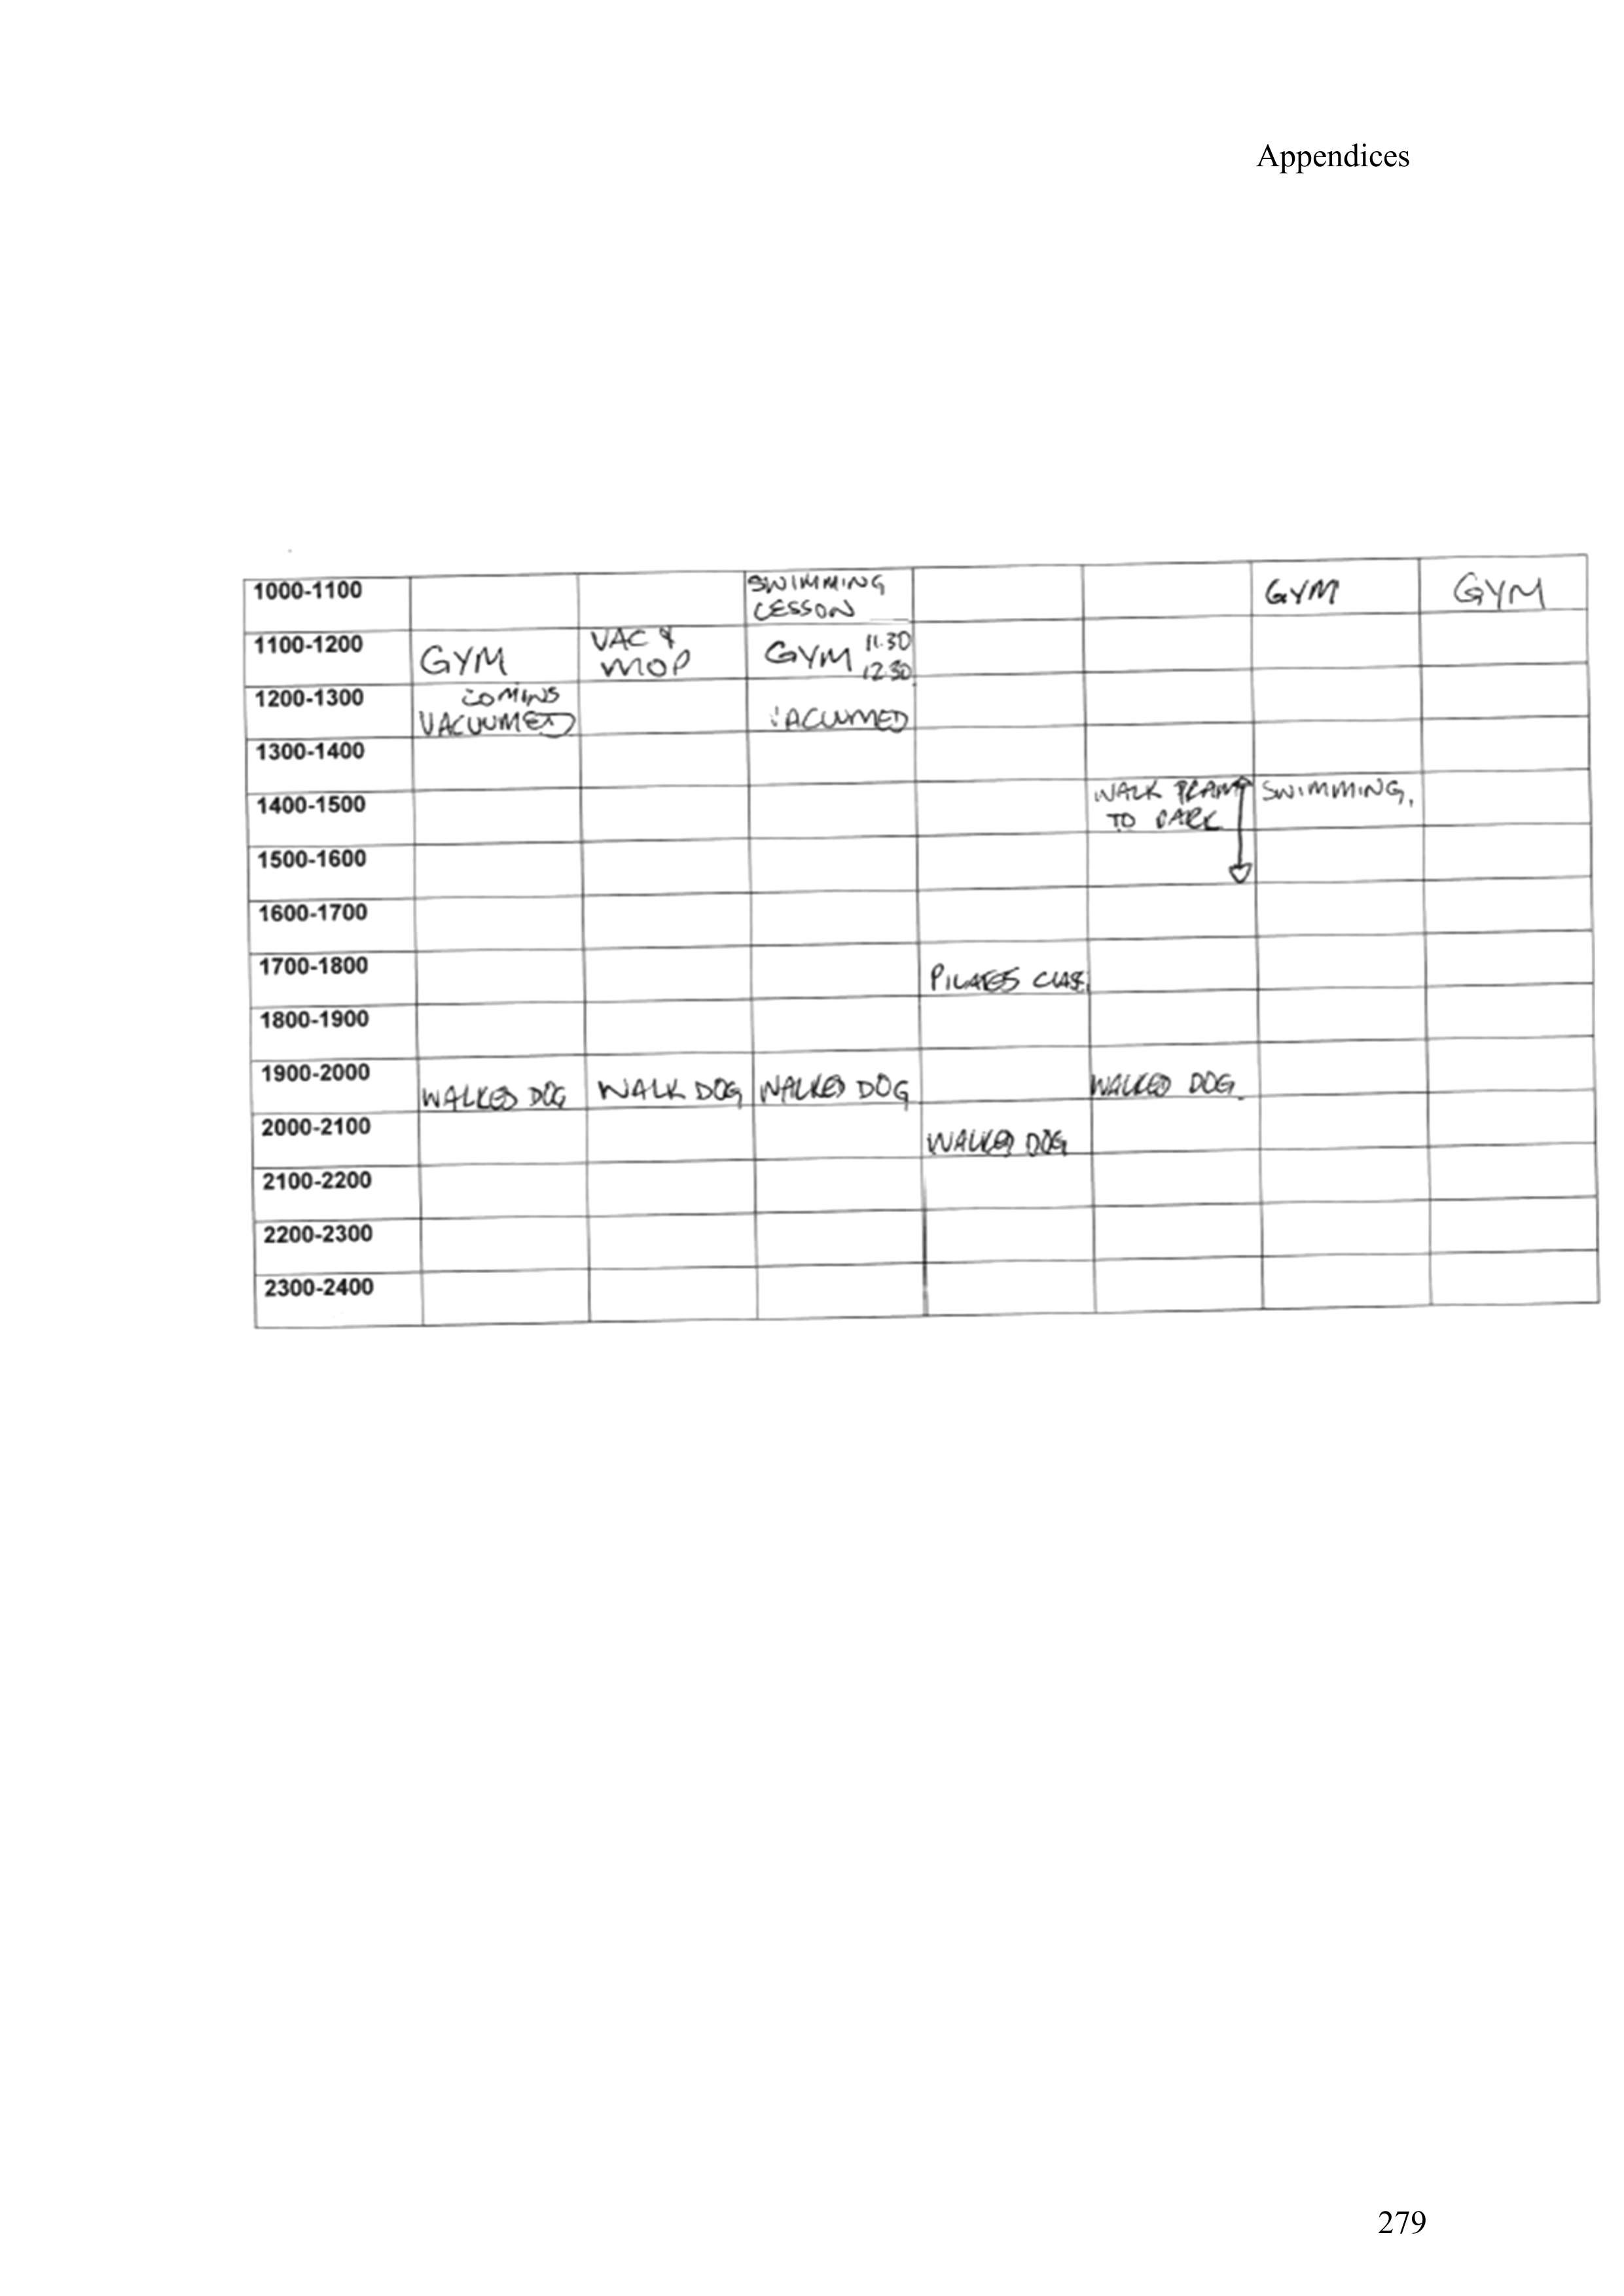 Appendices
1000-1100 SWIMMING GYM GYM
LESSON
1100-1200 GYM VAC & MOP GYM 11.30
12.30
1200-1300
VACUUMED VACUUMED
1300-1400
1400-1500 WALK PRAM SWIMMING,
TO PARK
1500-1600
1600-1700
1700-1800 PILATES CLASS
1800-1900
1900-2000 WALKED DOG WALK DOG WALKED DOG WALKED DOG
2000-2100 WALKED DOG
2100-2200
2200-2300
2300-2400
279